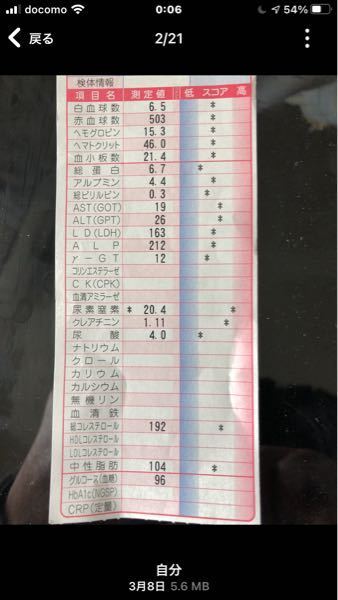 docomo 0:06 54%
戻る 2/21
検体情報
項目名 測定値 低 スコア 高
白血球数 6.5 *
赤血球数 503 *
ヘモグロビン 15.3 *
ヘマトクリット 46.0 *
血小板数 21.4 *
総蛋白 6.7 *
アルブミン 4.4 *
総ビリルビン 0.3 *
AST(GOT) 19 *
ALT(GPT) 26 *
LD(LDH) 163 *
ALP 212 *
γ-GT 12 *
コリンエステラーゼ
CK(CPK)
血清アミラーゼ
尿素窒素 * 20.4 *
クレアチニン 1.11 *
尿酸 4.0 *
ナトリウム
クロール
カリウム
カルシウム
無機リン
血清鉄
総コレステロール 192 *
HDLコレステロール
LDLコレステロール
中性脂肪 104 *
グルコース(血糖) 96
HbA1c(NGSP)
CRP(定量)
自分
3月8日 5.6 MB